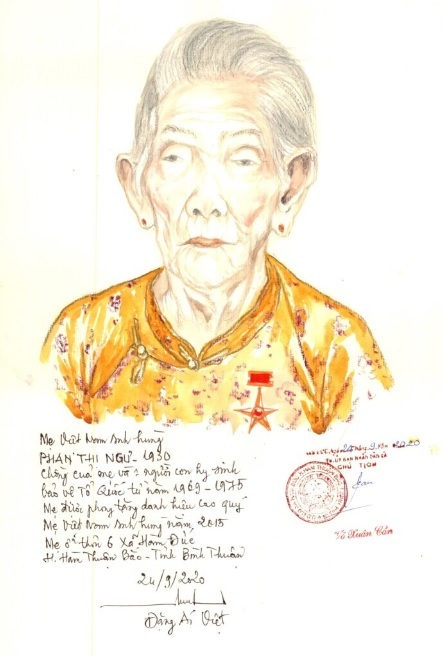 Mẹ Việt Nam anh hùng
PHAN THỊ NGƯ - 1930
Chồng của mẹ và 2 người con hy sinh
bảo vệ Tổ Quốc từ năm 1969 - 1975
Mẹ được phong tặng danh hiệu cao quý
Mẹ Việt Nam anh hùng năm, 2015
Mẹ ở thôn 6 Xã Hàm Đức
H. Hàm Thuận Bắc - Tỉnh Bình Thuận
24/9/2020
Đặng Ái Việt
TM. ỦY BAN NHÂN DÂN XÃ
CHỦ TỊCH
Võ Xuân Cần